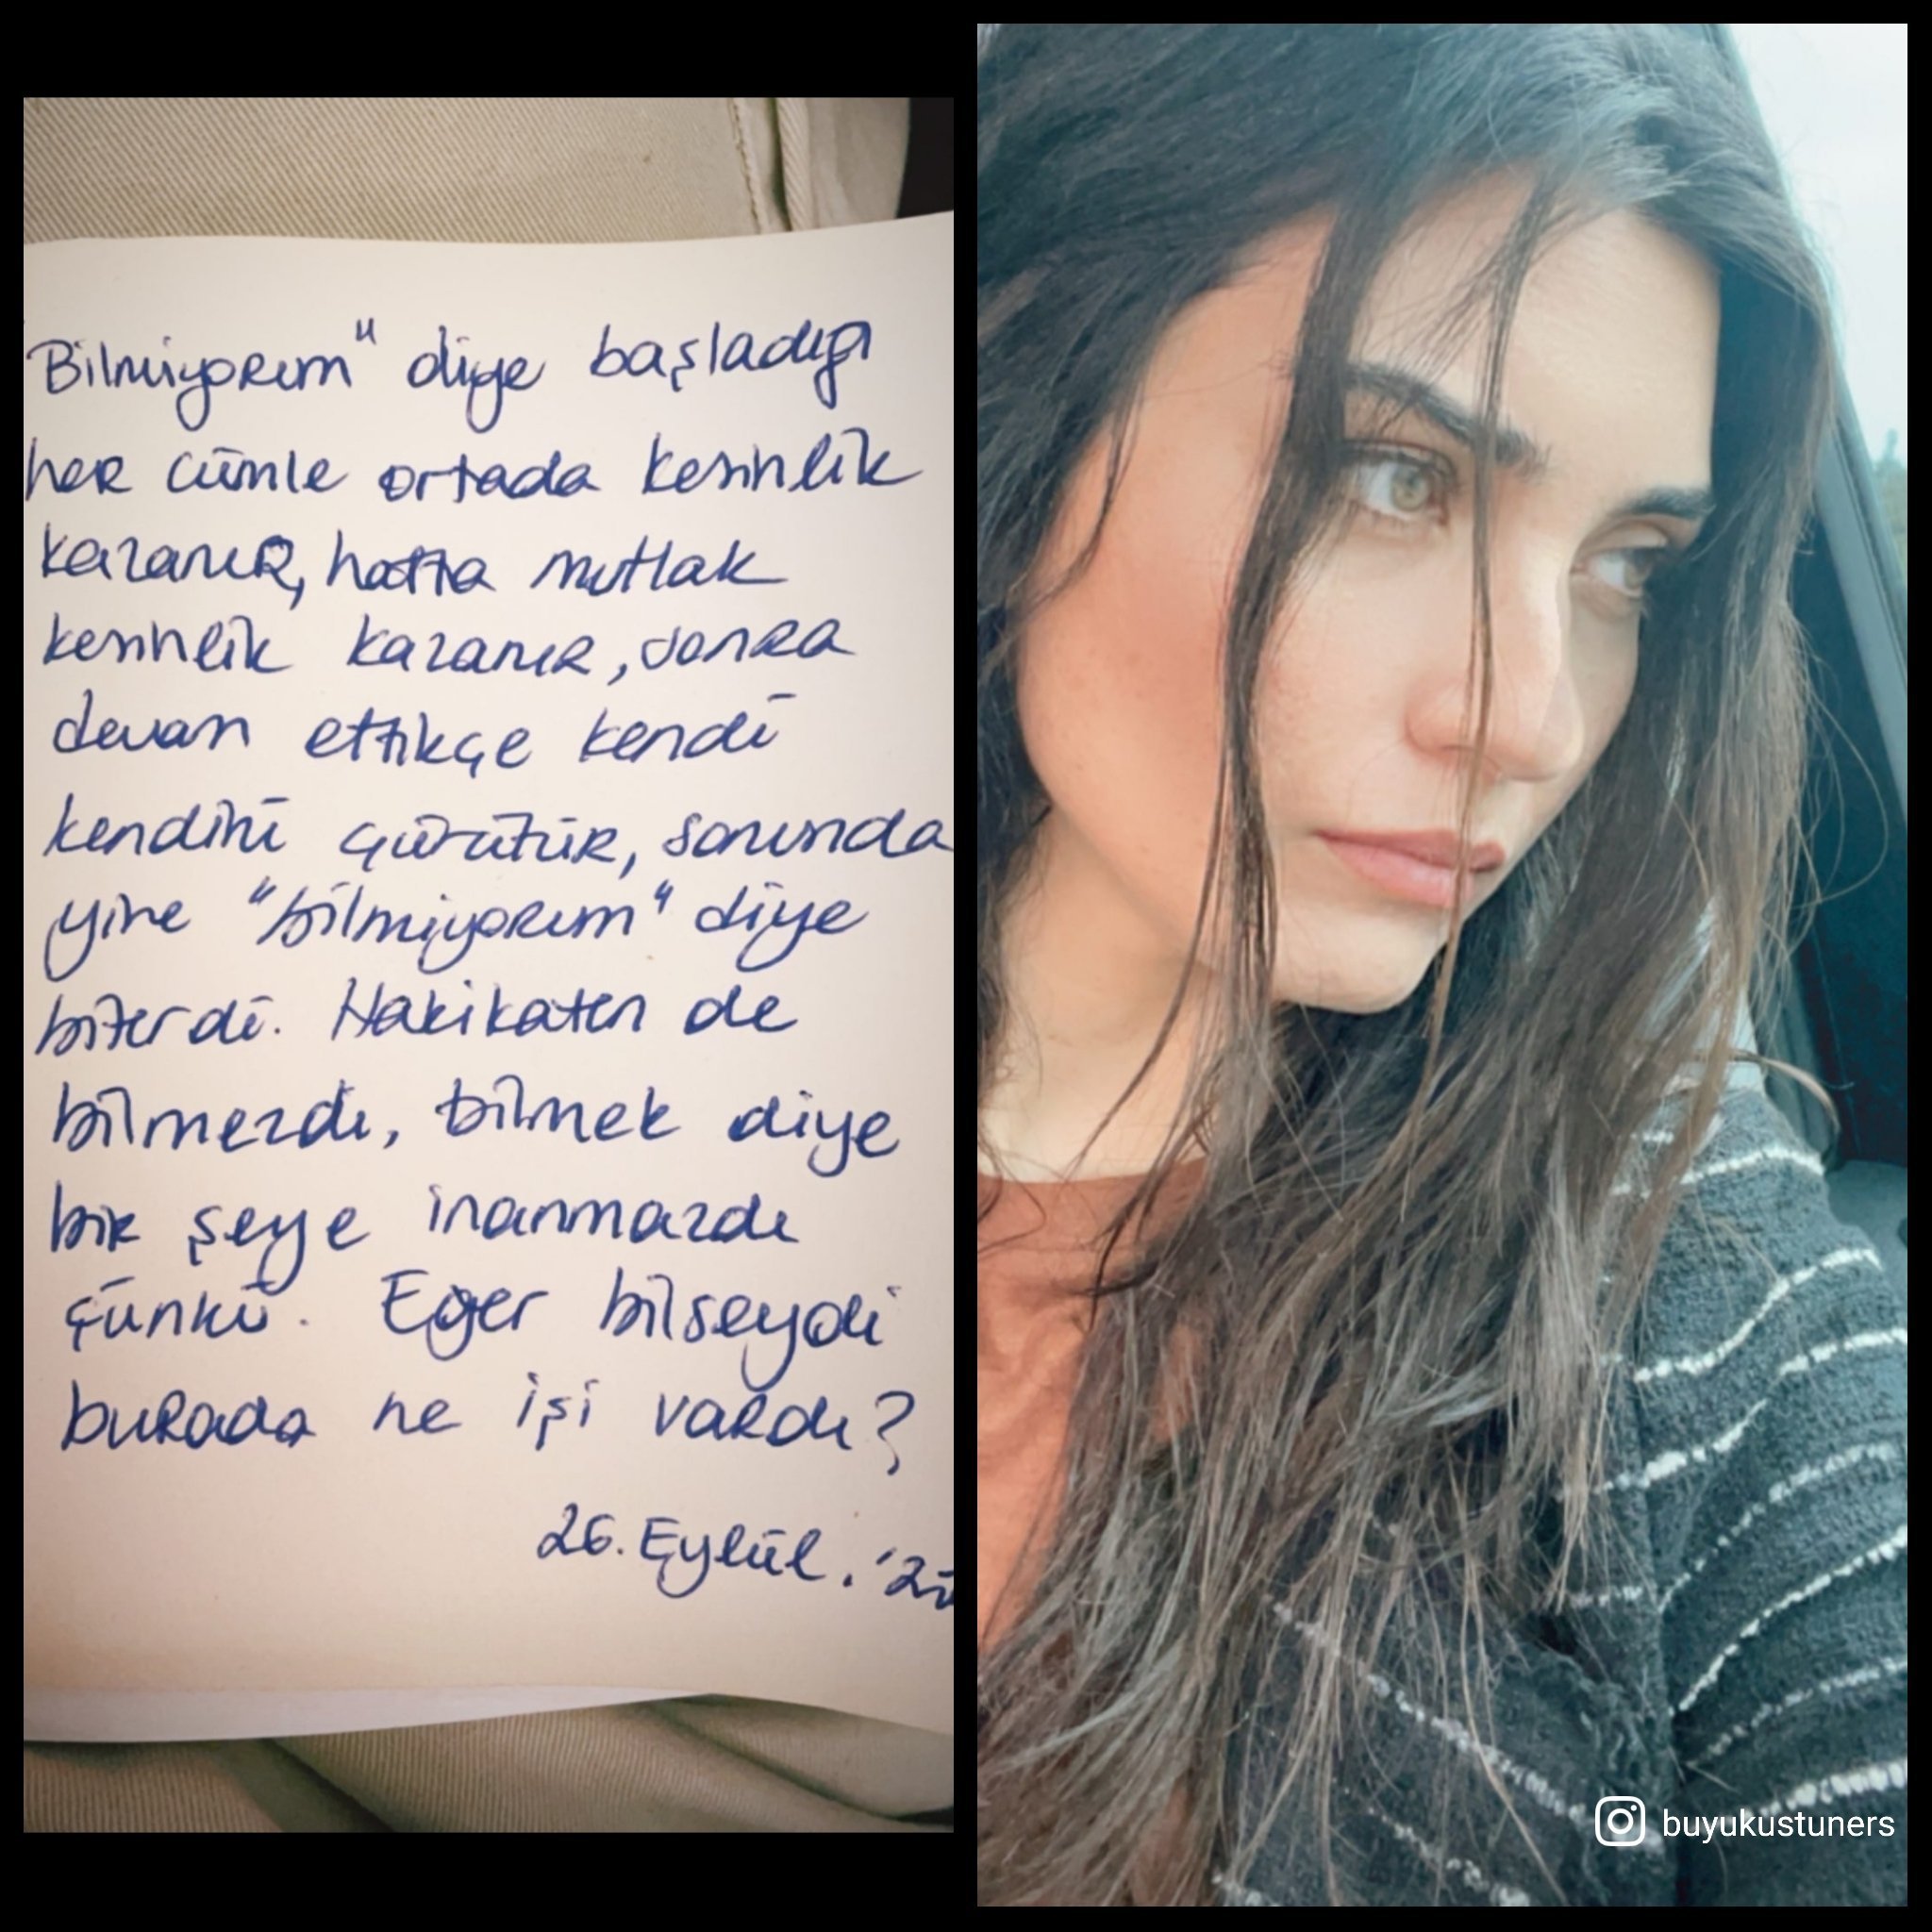 Bilmiyorum" diye başladığı
her cümle ortada kesinlik
kazanır, hatta mutlak
kesinlik kazanır, sonra
devam ettikçe kendi
kendini çürütür, sonunda
yine "bilmiyorum" diye
biterdi. Hakikaten de
bilmezdi, bilmek diye
bir şeye inanmazdı
çünkü. Eğer bilseydi
burada ne işi vardı?
26. Eylül.
buyukustuners